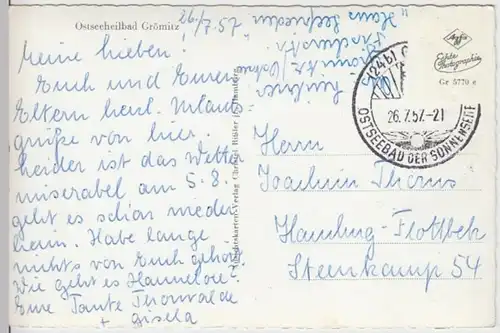 Ostseeheilbad Grömitz
26/7.57
Meine Lieben!
Euch und Euren
Eltern herzl. Urlaubs-
grüße von hier.
Leider ist das Wetter
miserabel am 5.8.
geht es schon wieder
heim. Habe lange
nichts von Euch gehört.
Wie geht es Hannelore?
Eure Tante Thorwalde
+ Gisela
Haus Seefrieden
Agfa
Echte
Photographie
Gr 5770 e
(24b)
26.7.57.-21
OSTSEEBAD DER SONNENSEITE
Herrn
Joachim Thoms
Hamburg-Flottbek
Steenkamp 54